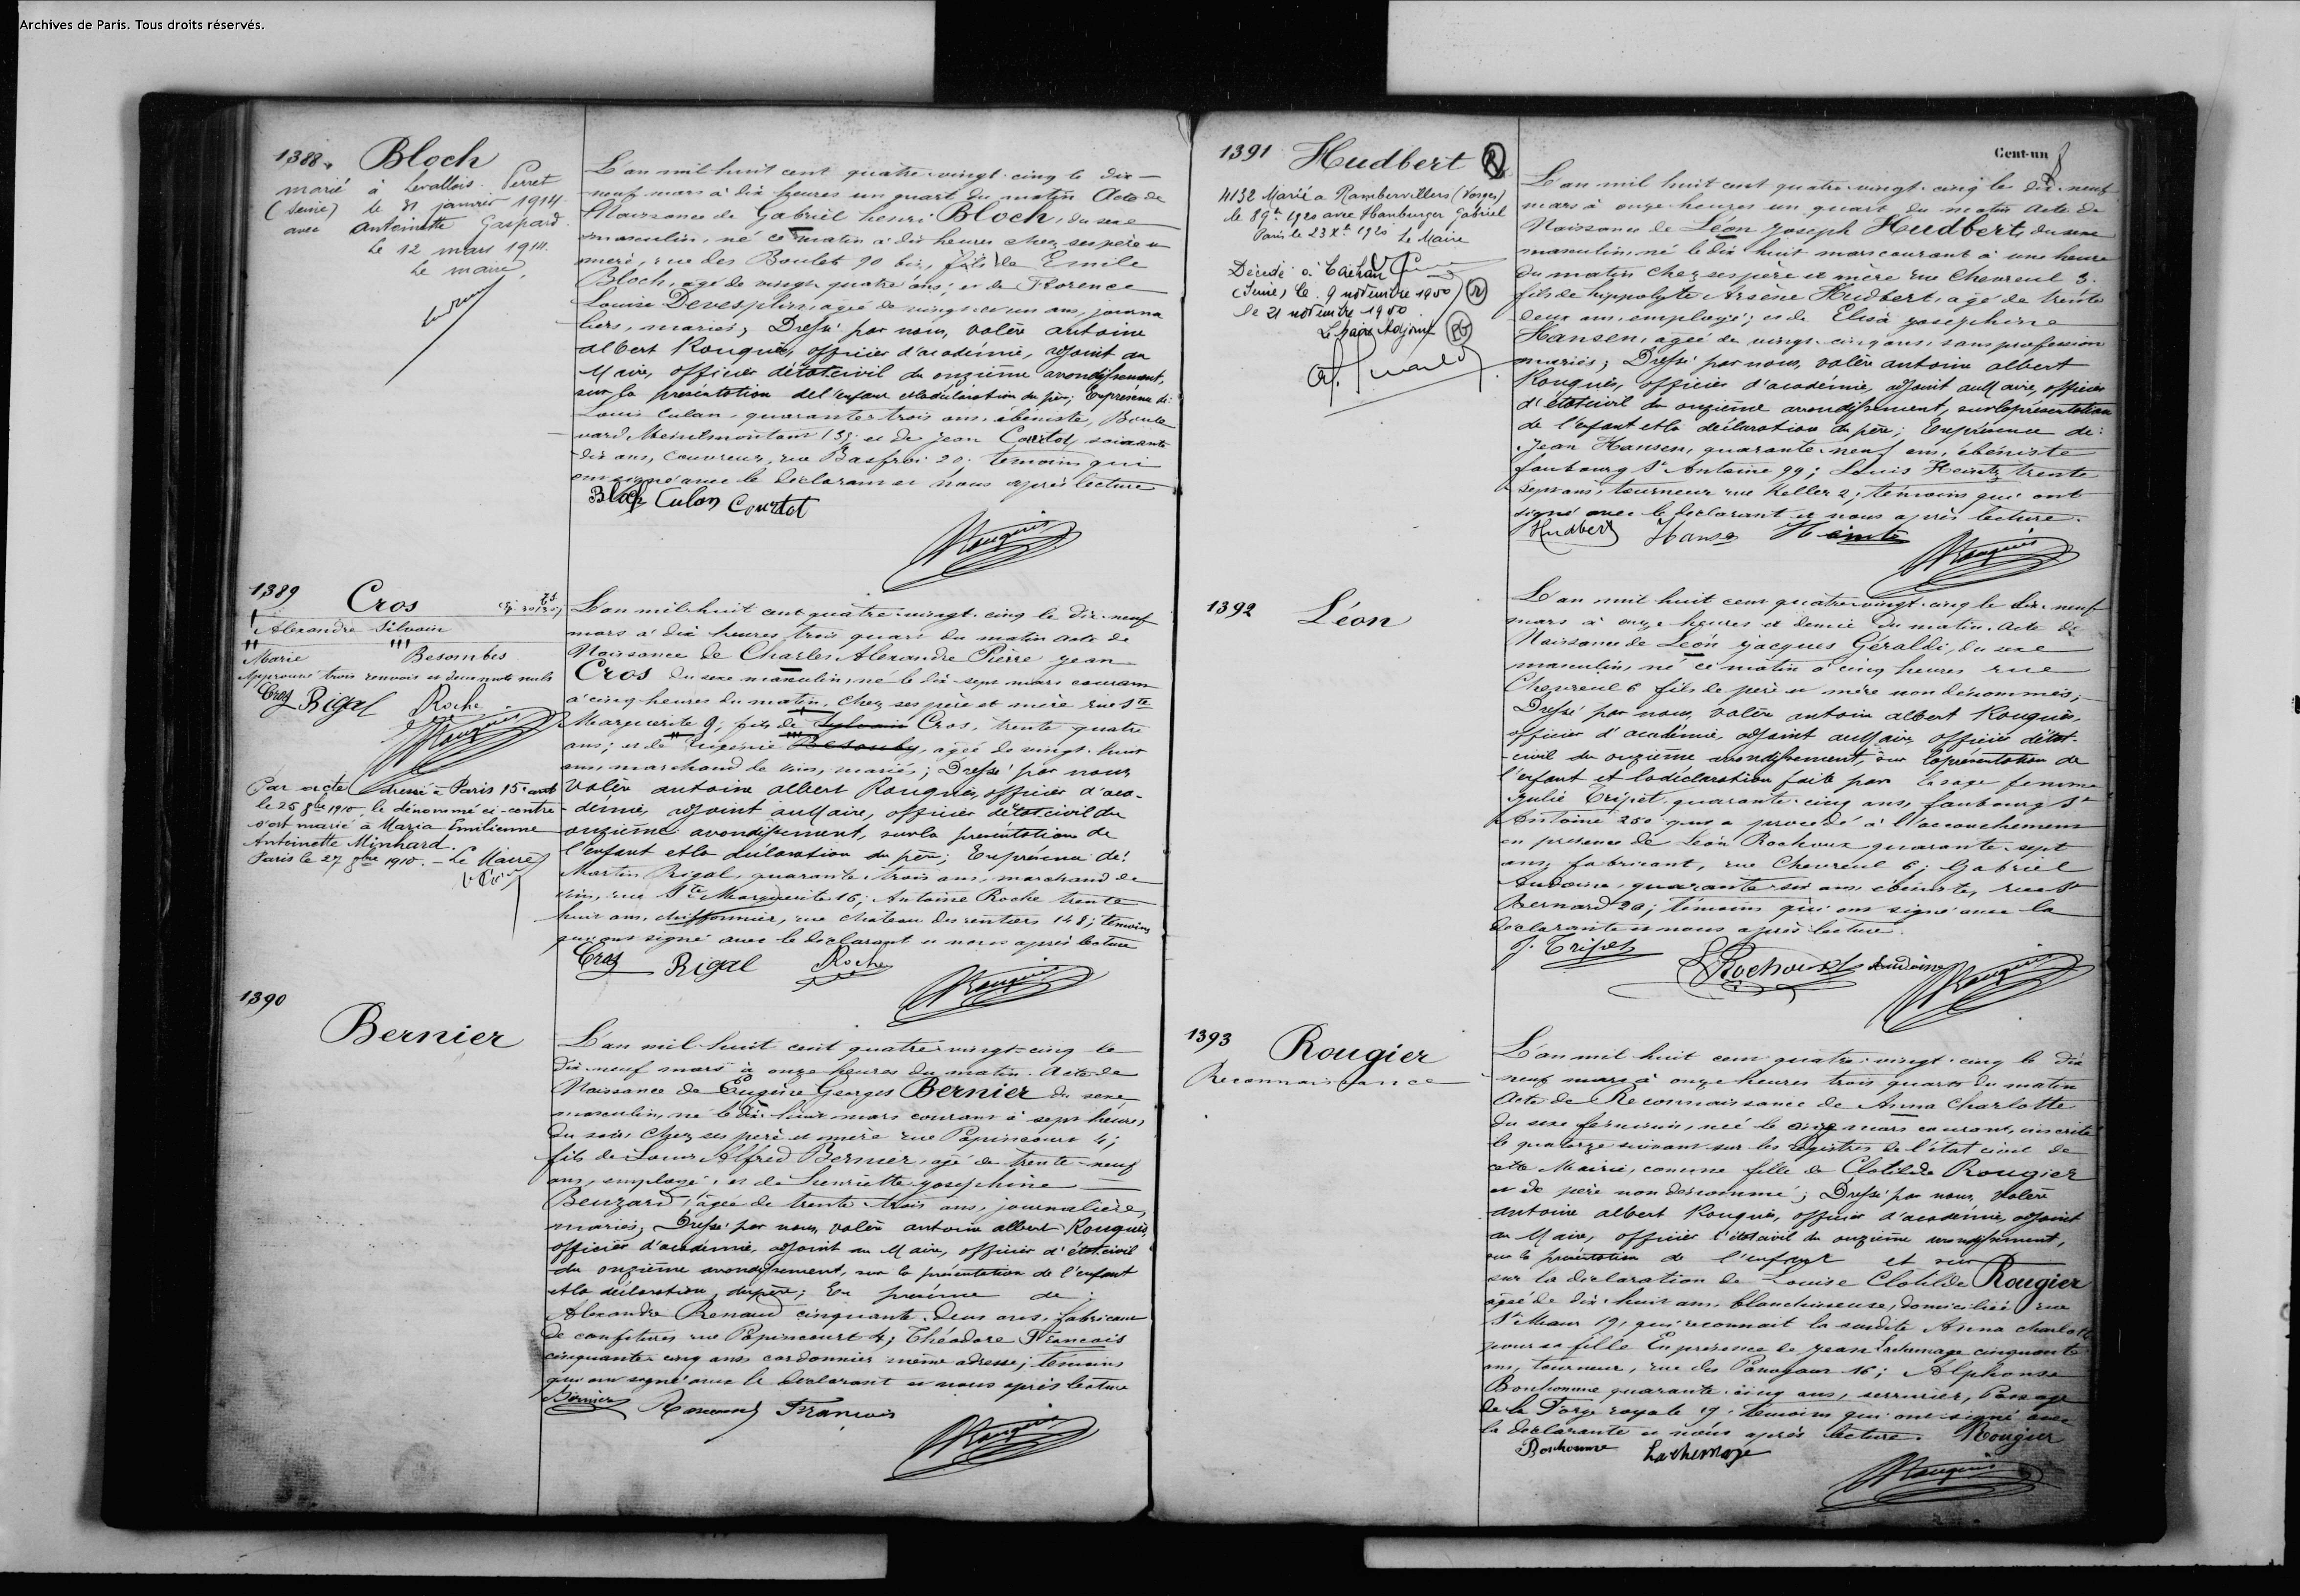 Archives de Paris. Tous droits réservés.
1388. Bloch
marié à Levallois Perret
(Seine) le 31 janvier 1914
avec Antoinette Gaspard
Le 12 mars 1914.
Le maire,
L'an mil huit cent quatre-vingt-cinq le dix-
neuf mars à dix heures un quart du matin Acte de
Naissance de Gabriel henri Bloch, du sexe
masculin, né ce matin à dix heures chez ses père et
mère, rue des Boulets 90 bis, fils de Emile
Bloch, agé de vingt quatre ans, et de Florence
Louise agée de vingt et un ans, journa
liers, mariés; Dressé par nous, Valère antoine
albert Rouquès, officier d'académie, adjoint au
Maire, officier d'état civil du onzième arrondissement,
sur la présentation de l'enfant et la déclaration du père; En présence de:
Louis Culan, quarante trois ans, ébéniste, Boule
vard Menilmontant 135 et de jean Courtot, soixante
dix ans, couvreur, rue Basfroi 20; temoins qui
ont signé avec le déclarant et nous après lecture
Bloch Culan Courtot
Rouquès
1389 Cros
Alexandre Silvain
Marie Besombes
Approuvé trois renvois et mots nuls
Cros Rigal Roche
Rouquès
Par acte dressé à Paris 15e arrt
le 25 8bre 1910, le dénommé ci-contre
s'est marié à Maria Emilienne
Antoinette Minhard.
Paris le 27 8bre 1910. - Le Maire
L'an mil huit cent quatre-vingt-cinq le dix-neuf
mars à dix heures trois quart du matin acte de
Naissance de Charles Alexandre Pierre jean
Cros du sexe masculin, né le dix sept mars courant
à cinq heures du matin, chez ses père et mère rue Ste
Marguerite 9, fils de Sylvain Cros, trente quatre
ans; et de Eugénie agée de vingt-huit
ans, marchand de vins, mariés; Dressé par nous
Valère antoine albert Rouquès, officier d'aca-
démie, adjoint au Maire, officier d'état civil du
onzième arrondissement, sur la présentation de
l'enfant et la déclaration du père; En présence de:
Martin Rigal, quarante trois ans, marchand de
vins, rue Ste Marguerite 16; Antoine Roche trente
huit ans, chiffonnier, rue château des rentiers 148; temoins
qui ont signé avec le déclarant et nous après lecture
Cros Rigal Roche
Rouquès
1390
Bernier
L'an mil huit cent quatre-vingt-cinq le
dix-neuf mars à onze heures du matin. Acte de
Naissance de Eugène Georges Bernier du sexe
masculin, né le dix huit mars courant à sept heures
du soir, chez ses père et mère rue Popincourt 4;
fils de Louis Alfred Bernier, agé de trente-neuf
ans, employé, et de henriette josephine
Beuzard, agée de trente-trois ans, journalière,
mariés; Dressé par nous, valère antoine albert Rouquès,
officier d'académie, adjoint au Maire, officier d'état civil
du onzième arrondissement, sur la présentation de l'enfant
et la déclaration du père; En présence de:
Alexandre Renaud cinquante-deux ans, fabricant
de confitures rue Popincourt 4; Théodore François
cinquante-cinq ans cordonnier même adresse; témoins
qui ont signé avec le déclarant et nous après lecture
Bernier Renaud François
Rouquès
Cent-un
1391 Hudbert
4132 Marié a Rambervillers (Vosges)
le 8 9bre 1920 avec Hamburger Gabriel
Paris le 23 Xbre 1920 Le Maire
Décédé à Cachan
(Seine) le 9 novembre 1950
le 21 novembre 1950
Le Maire Adjoint
L'an mil huit cent quatre-vingt-cinq le dix-neuf
mars à onze heures un quart du matin Acte de
Naissance de Léon joseph Hudbert, du sexe
masculin, né le dix huit mars courant à une heure
du matin chez ses père et mère rue Chevreul 3.
fils de hippolyte Arsène Hudbert, agé de trente
deux ans, employé; et de Elisa josephine
Hansen, agée de vingt-cinq ans, sans profession
mariés; Dressé par nous, valère antoine albert
Rouquès, officier d'académie, adjoint au Maire, officier
d'état civil du onzième arrondissement, sur la présentation
de l'enfant et la déclaration du père; En présence de:
Jean Hansen, quarante-neuf ans, ébéniste
faubourg St Antoine 99; Louis Heintz trente
sept ans, tourneur rue Keller 2; témoins qui ont
signé avec le déclarant et nous après lecture.
Hudbert Hansen Heintz
Rouquès
1392 Léon
L'an mil huit cent quatre-vingt-cinq le dix-neuf
mars à onze heures et demie du matin. Acte de
Naissance de Léon jacques Géraldi, du sexe
masculin, né ce matin à cinq heures rue
Chevreul 6 fils de père et mère non dénommés;
Dressé par nous, Valère antoine albert Rouquès,
officier d'académie, adjoint au Maire, officier d'état-
civil du onzième arrondissement, sur la présentation de
l'enfant et la déclaration faite par la sage femme
julie Tripet quarante-cinq ans, faubourg St
Antoine 250 qui a procédé à l'accouchement
en présence de Léon Rochoux quarante-sept
ans, fabricant, rue Chevreul 6; Gabriel
Audoine, quarante six ans, ébéniste, rue St
Bernard 20; témoins qui ont signé avec la
déclarante et nous après lecture.
J. Tripet
Rochoux Audoine
Rouquès
1393 Rougier
Reconnaissance
L'an mil huit cent quatre-vingt-cinq le dix
neuf mars à onze heures trois quarts du matin
Acte de Reconnaissance de Anna Charlotte
du sexe féminin, née le onze mars courant, inscrite
le quatorze suivant sur les régistres de l'état civil de
cette Mairie, comme fille de Clotilde Rougier
et de père non dénommé; Dressé par nous, Valère
antoine albert Rouquès, officier d'académie, adjoint
au Maire, officier d'état civil du onzième arrondissement,
sur la présentation de l'enfant et sur
sur la déclaration de Louise Clotilde Rougier
agée de dix-huit ans, blanchisseuse, domiciliée rue
St Maur 19, qui reconnait la susdite Anna charlotte
pour sa fille En présence de jean cinquante
ans, tourneur, rue des 16; Alphonse
Bonhomme quarante-cinq ans, serrurier, Passage
de la Forge royale 19, témoins qui ont signé avec
la déclarante et nous après lecture. Rougier
Bonhomme
Rouquès